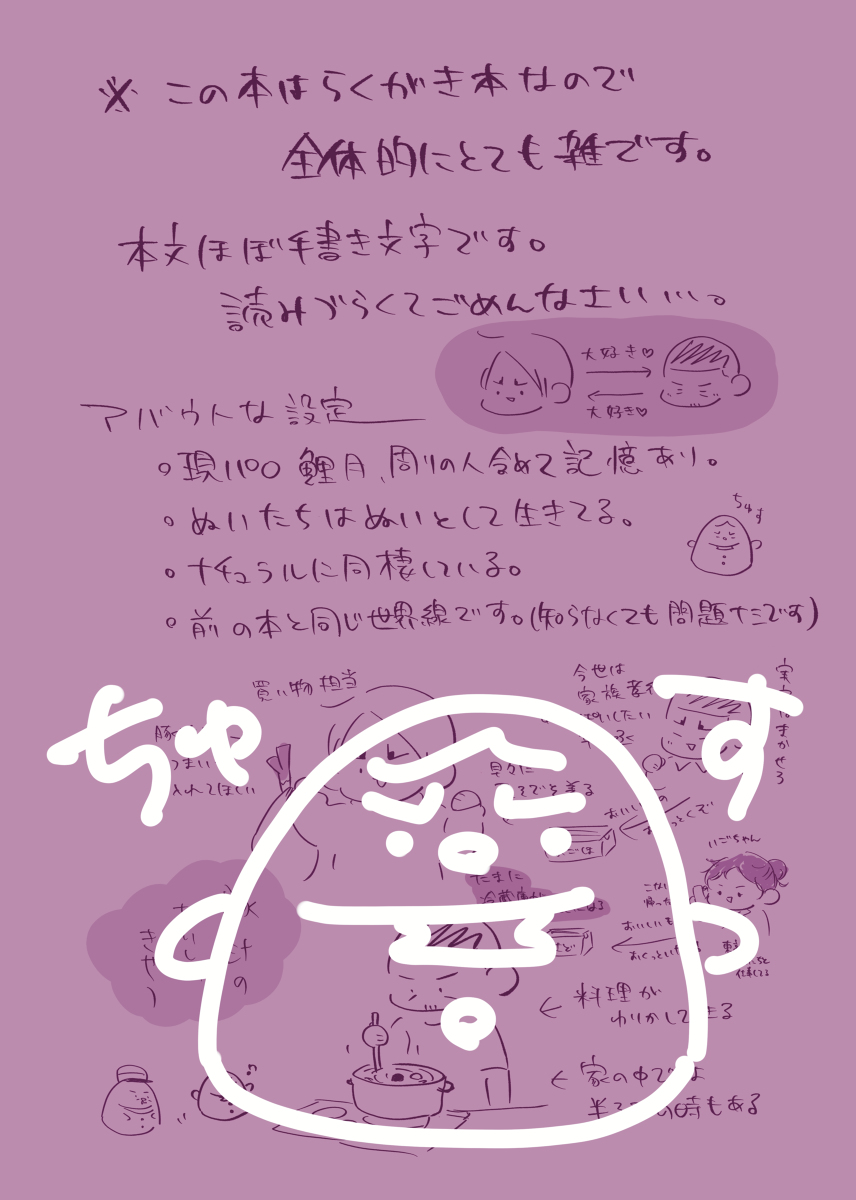 ※ この本はらくがき本なので
全体的にとても雑です。
本文ほぼ手書き文字です。
読みづらくてごめんなさい…。
大好き♡
大好き♡
アバウトな設定
○現パロ 鯉月、周りの人含めて記憶あり。
○ぬいたちはぬいとして生きてる。
○ナチュラルに同棲している。
○前の本と同じ世界線です。(知らなくても問題ナミです)
ちゅす
買い物担当
今世は
家族孝行
したい
まかせろ
うまい
いれてほしい
早々に
おいしいもの
おくっとくぞ
いごちゃん
たまに
おいしいも
おくっといた
← 料理が
わりかしできる
← 家の中では
半
の時もある
ちゅす